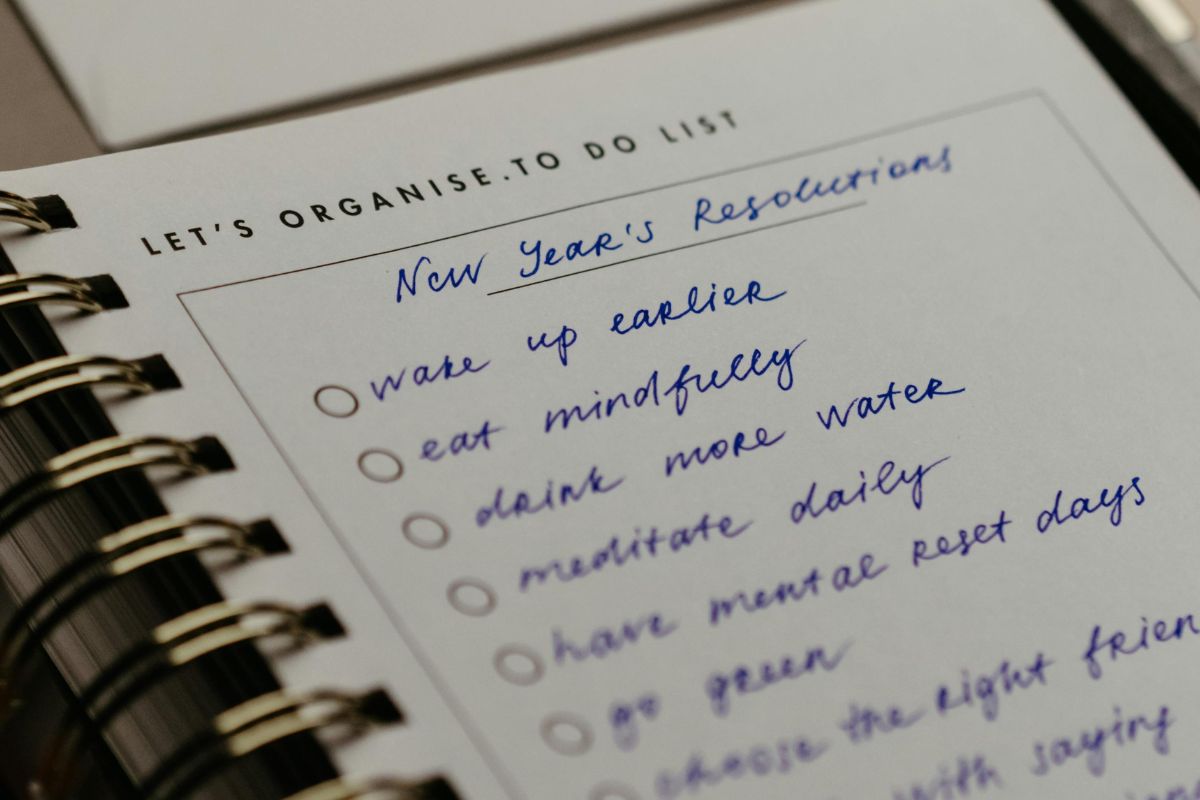 LET'S ORGANISE.TO DO LIST
New Year's Resolutions
wake up earlier
eat mindfully
drink more water
meditate daily
have mental reset days
go green
choose the right frien
with saying